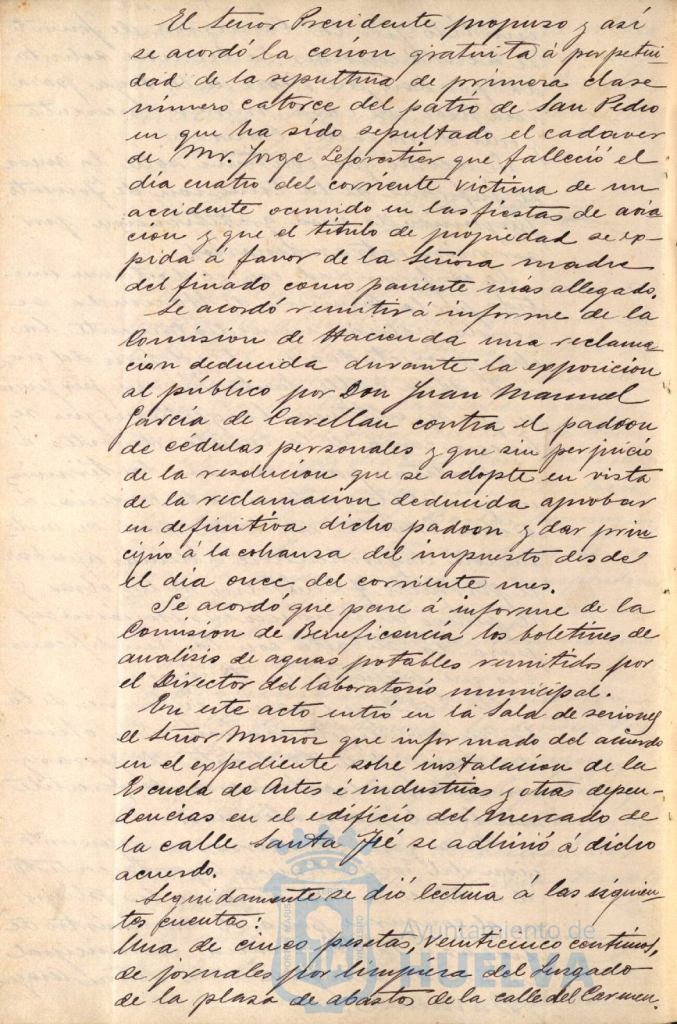 El Señor Presidente propuso y así
se acordó la cesion gratuita á perpetui-
dad de la sepultura de primera clase
número catorce del patio de San Pedro
en que ha sido sepultado el cadaver
de Mr. Jorge Leforestier que falleció el
dia cuatro del corriente victima de un
accidente ocurrido en las fiestas de avia
cion y que el título de propiedad se ex-
pida á favor de la Señora madre
del finado como pariente más allegado.
Se acordó remitir á informe de la
Comision de Hacienda una reclama-
cion deducida durante la exposicion
al público por Don Juan Manuel
García de Carellan contra el padron
de cédulas personales y que sin perjuicio
de la resolucion que se adopte en vista
de la reclamacion deducida aprobar
en definitiva dicho padron y dar prin
cipio á la cobranza del impuesto desde
el dia once del corriente mes.
Se acordó que pase á informe de la
Comision de Beneficencia los boletines de
analisis de aguas potables remitidos por
el Director del laboratorio municipal.
En este acto entró en la Sala de sesiones
el Señor Muñoz que informado del acuerdo
en el expediente sobre instalacion de la
Escuela de Artes é industrias y otras depen-
dencias en el edificio del mercado de
la calle Santa Fé se adhirió á dicho
acuerdo.
Seguidamente se dió lectura á las siguien-
tes cuentas:
Una de cinco pesetas, veinticinco centimos,
de jornales por limpiera del Juzgado
de la plaza de abastos de la calle del Carmen.
Ayuntamiento de
HUELVA